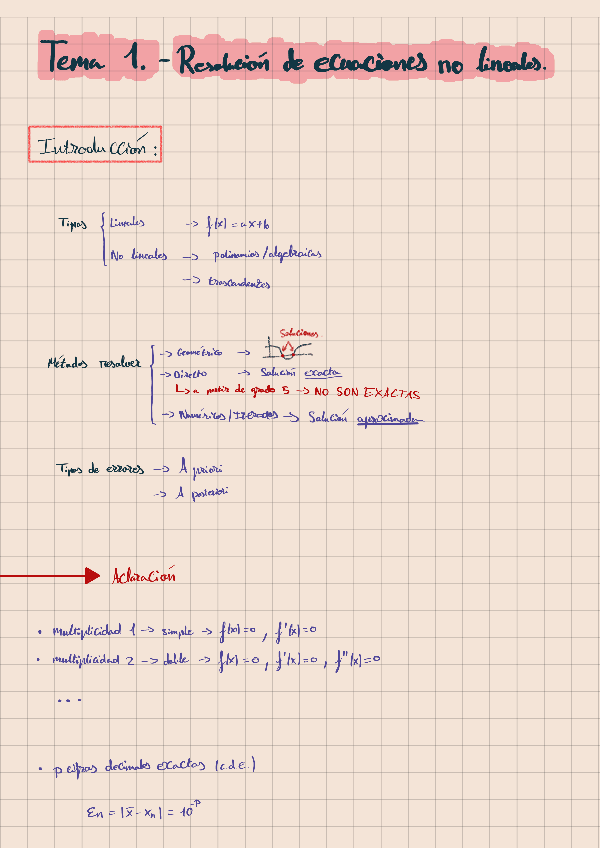 Tema 1. - Resolución de ecuaciones no lineales.
Introducción:
Tipos { Lineales -> f(x) = ax+b
No lineales -> polinomios/algebraicas
-> trascendentes
Soluciones
Métodos resolver { -> Geométrico ->
-> Directo -> Solución exacta
↳ a partir de grado 5 -> NO SON EXACTAS
-> Numéricos/Iterados -> Solución aproximada
Tipos de errores -> A priori
-> A posteriori
Aclaración
• multiplicidad 1 -> simple -> f(x)=0, f'(x)=0
• multiplicidad 2 -> doble -> f(x)=0, f'(x)=0, f''(x)=0
...
• p cifras decimales exactas (c.d.e.)
En = |x̄ - xₙ| = 10⁻ᵖ